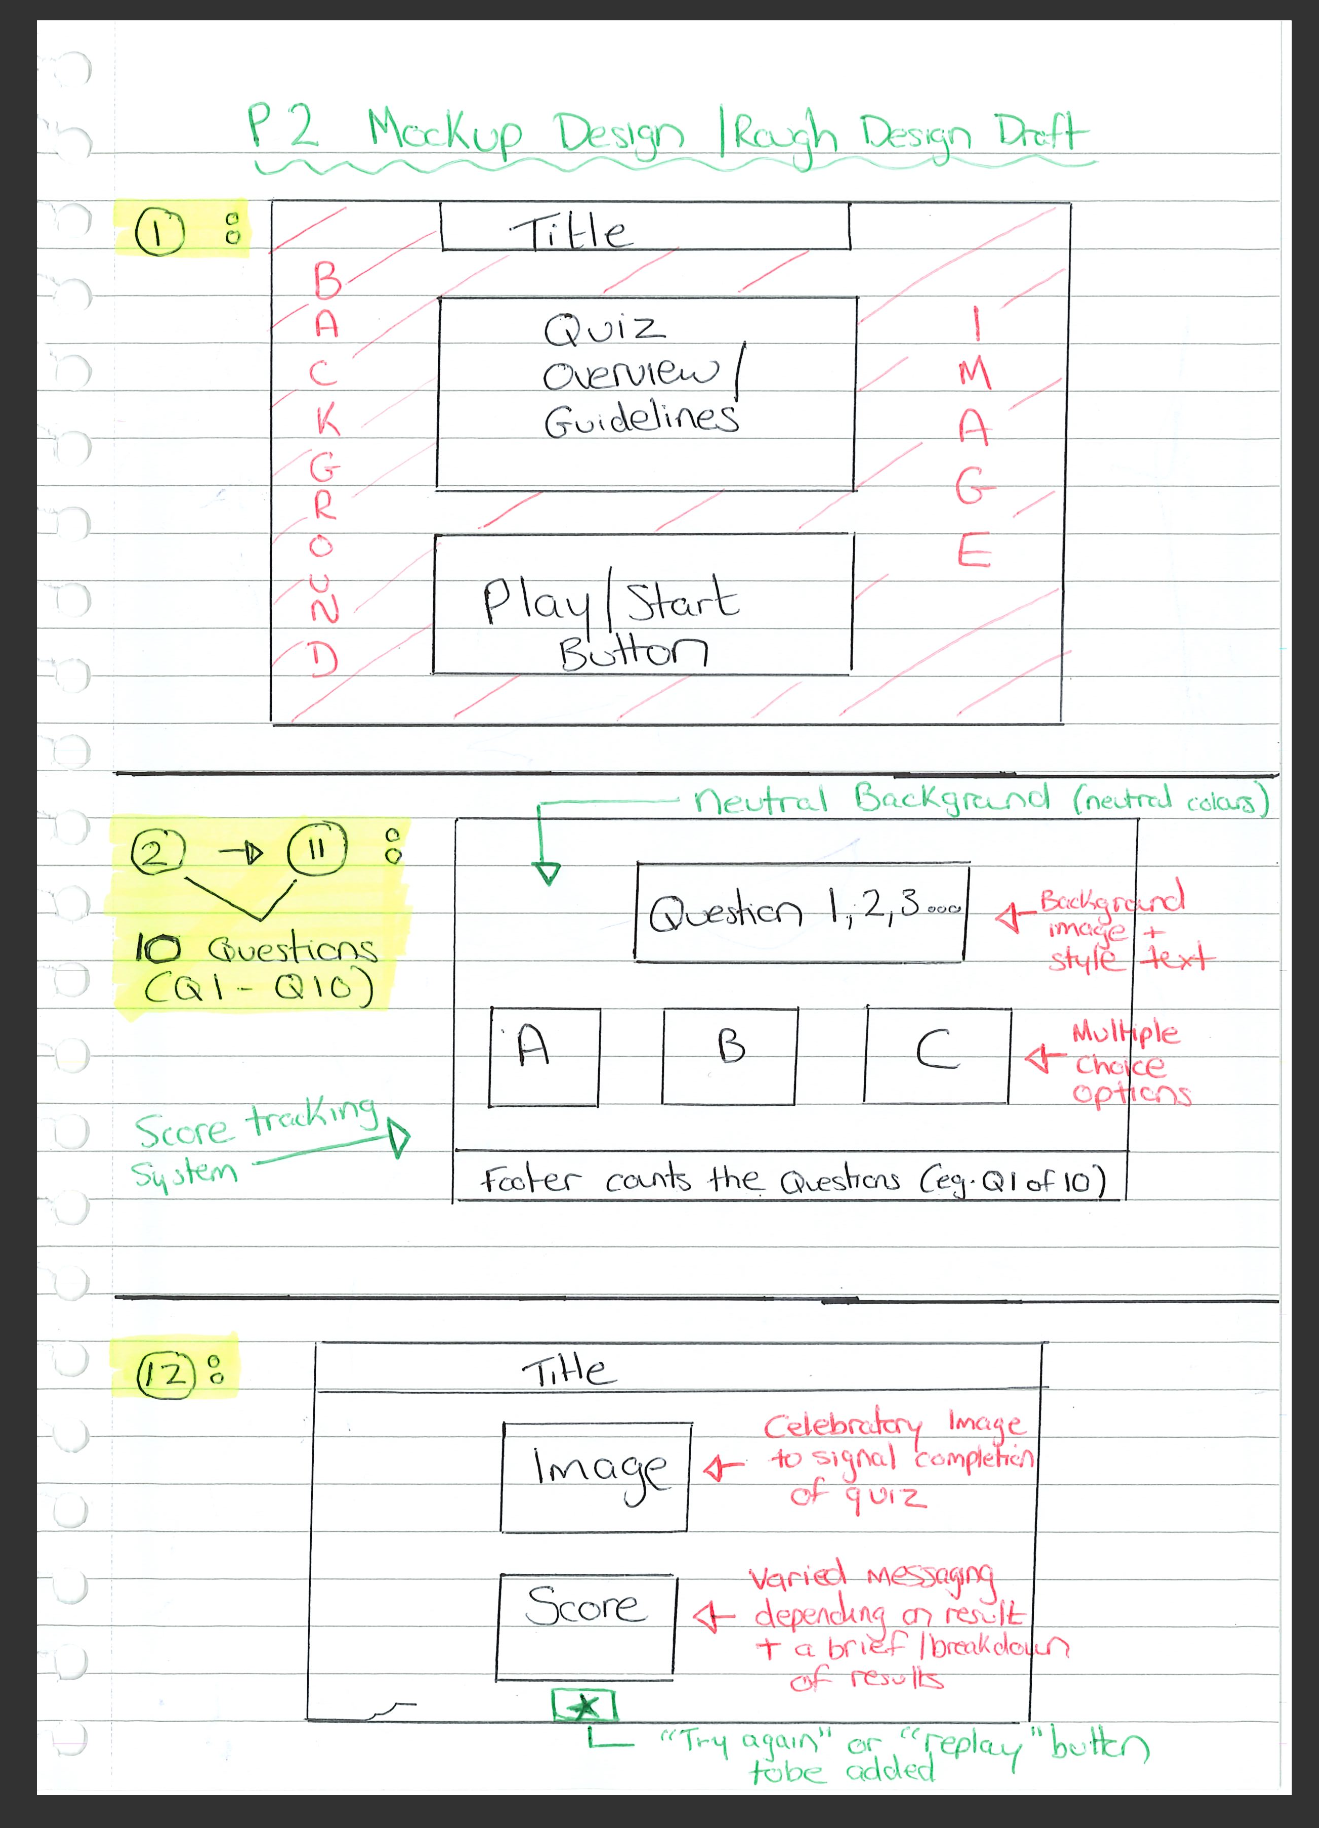 P2 Mockup Design / Rough Design Draft
1 :
Title
BACKGROUND
IMAGE
Quiz
Overview /
Guidelines
Play / Start
Button
Neutral Background (neutral colours)
2 → 11 :
10 Questions
(Q1 - Q10)
Question 1, 2, 3....
Background
image +
style text
A B C
Multiple
choice
options
Score tracking
system
Footer counts the Questions (eg. Q1 of 10)
12 :
Title
Image
Celebratory Image
to signal completion
of quiz
Score
Varied messaging
depending on result
+ a brief / breakdown
of results
"Try again" or "replay" button
tobe added